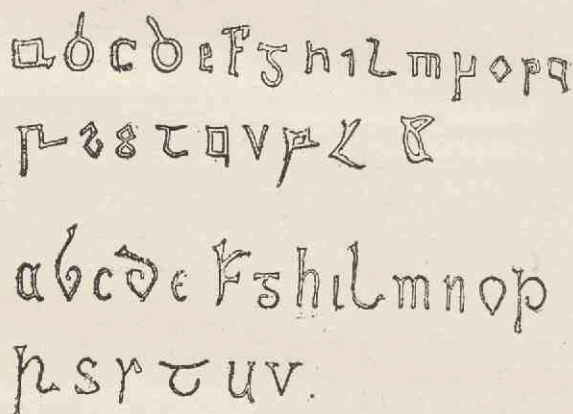 a b c d e f g h i l m n o p q
r s s t v
a b c d e f g h i l m n o p
r s r t u v.